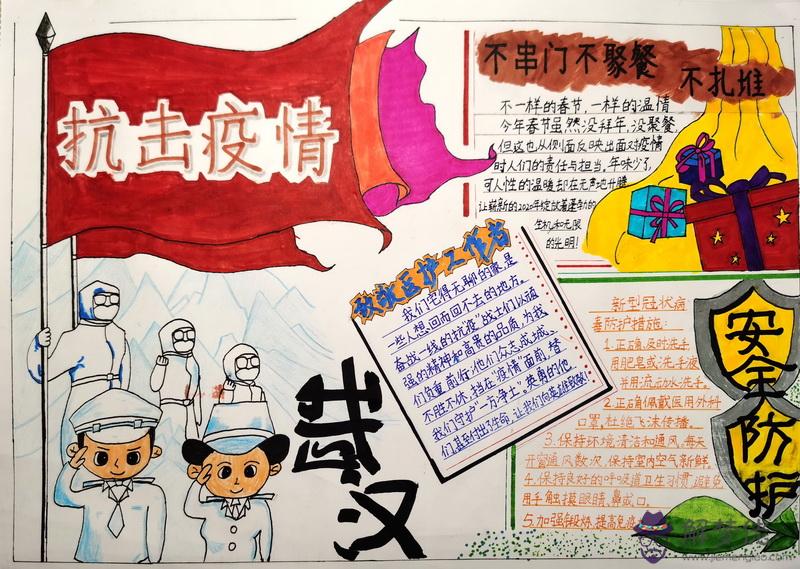 抗击疫情
不串门不聚餐
不扎堆
不一样的春节,一样的温情
今年春节虽然没拜年,没聚餐,
但这也从侧面反映出面对疫情
时人们的责任与担当。年味少了,
可人性的温暖却在无声地升腾
让崭新的2020年绽放着蓬勃的
生机和无限
的光明!
致敬医护工作者
我们觉得无聊的家是
一些人想回而回不去的地方。
奋战一线的抗疫"战士们以顽
强的精神和高贵的品质,为我
们负重前行,他们众志成城、
不胜不休,挡在"疫情"面前,替
我们守护一方净土。英勇的他
们,甚至付出了生命,让我们向英雄致敬!
武汉
新型冠状病
毒防护措施:
1.正确,及时洗手
用肥皂或洗手液
并用流动水洗手。
2.正确佩戴医用外科
口罩,杜绝飞沫传播。
3.保持环境清洁和通风,每天
开窗通风数次,保持室内空气新鲜。
4.保持良好的呼吸道卫生习惯,避免
用手触摸眼睛、鼻或口。
5.加强锻炼,提高免疫
安全防护
解梦佬
www.jiemenglao.com